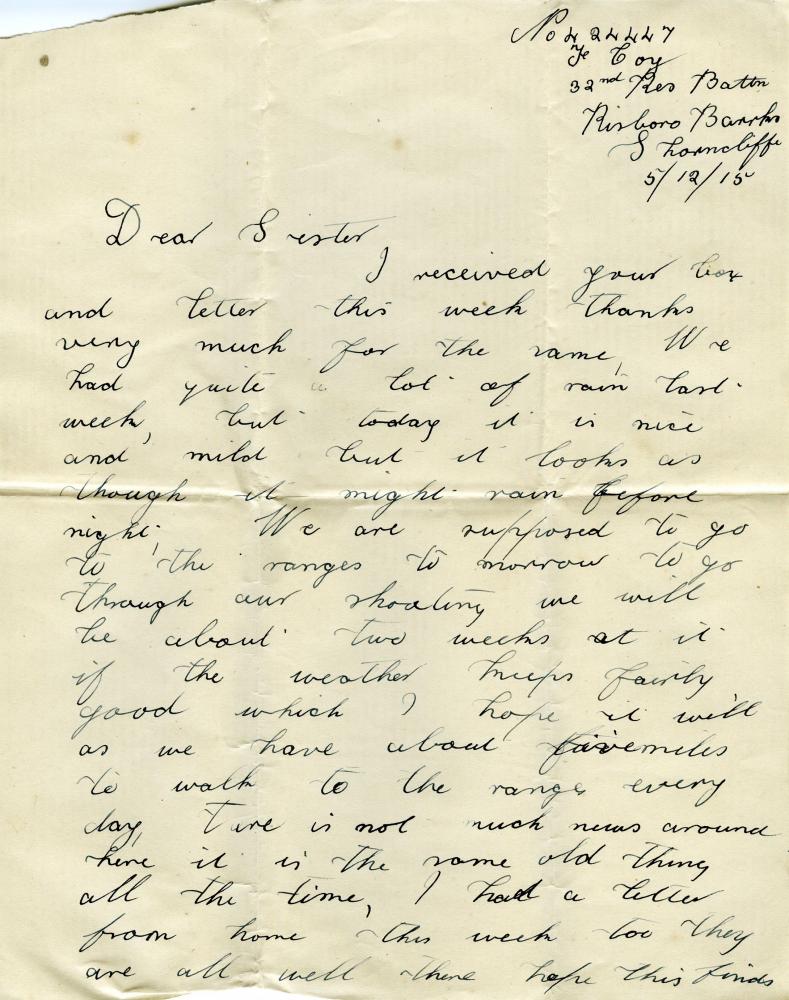 No 424447
Coy
32nd Res Battn
Risboro Barrks
Shorncliffe
5/12/15
Dear Sister
I received your box
and letter this week thanks
very much for the same, We
had quite a lot of rain last
week, but today it is nice
and mild but it looks as
though it might rain before
night; We are supposed to go
to the ranges to morrow to go
through our shooting we will
be about two weeks at it
if the weather keeps fairly
good which I hope it will
as we have about five miles
to walk to the ranges every
day, is not much news around
here it is the same old thing
all the time, I had a letter
from home this week too they
are all well there hope this finds